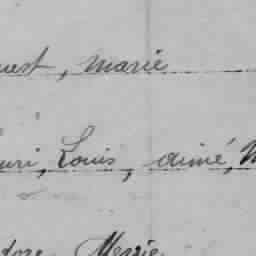 uest, Marie
enri, Louis, aimé, M
dore Marie